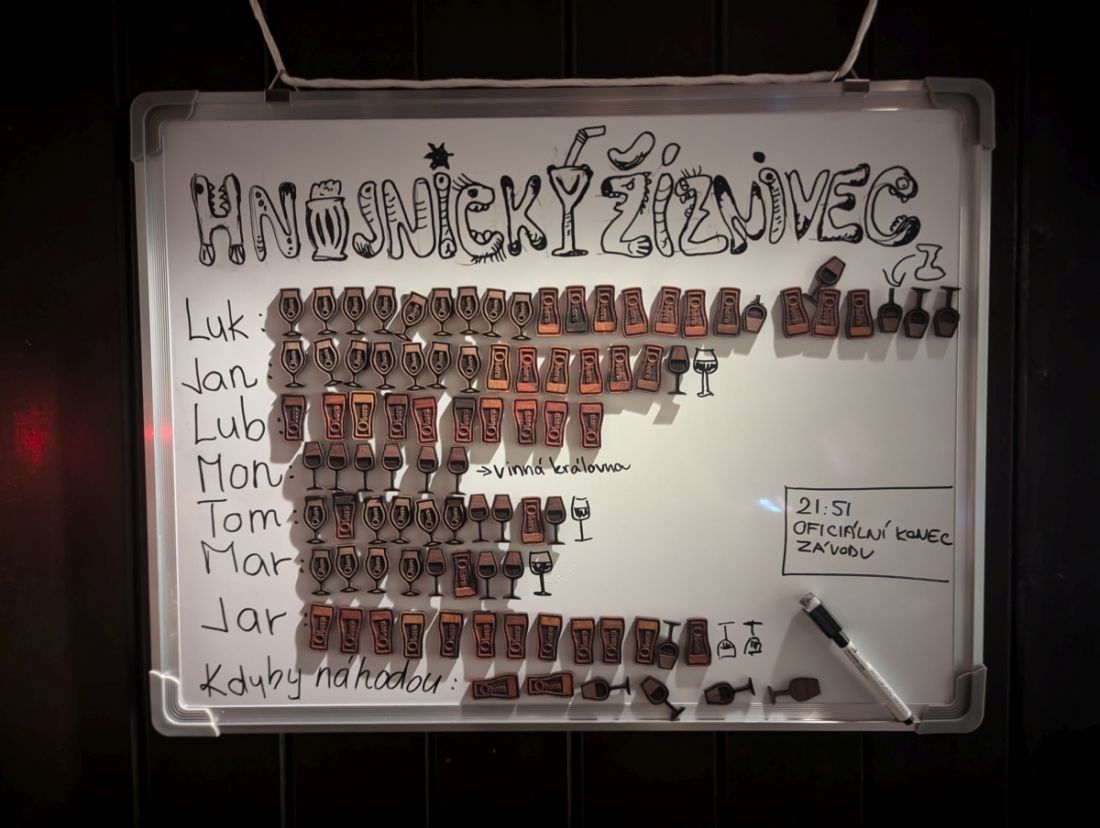 HNOJNICKÝ ŽÍZNIVEC
Luk:
Jan:
Lub:
Mon: → vinná královna
Tom:
Mar:
Jar:
Kdyby náhodou:
21:51
OFICIÁLNÍ KONEC
ZÁVODU